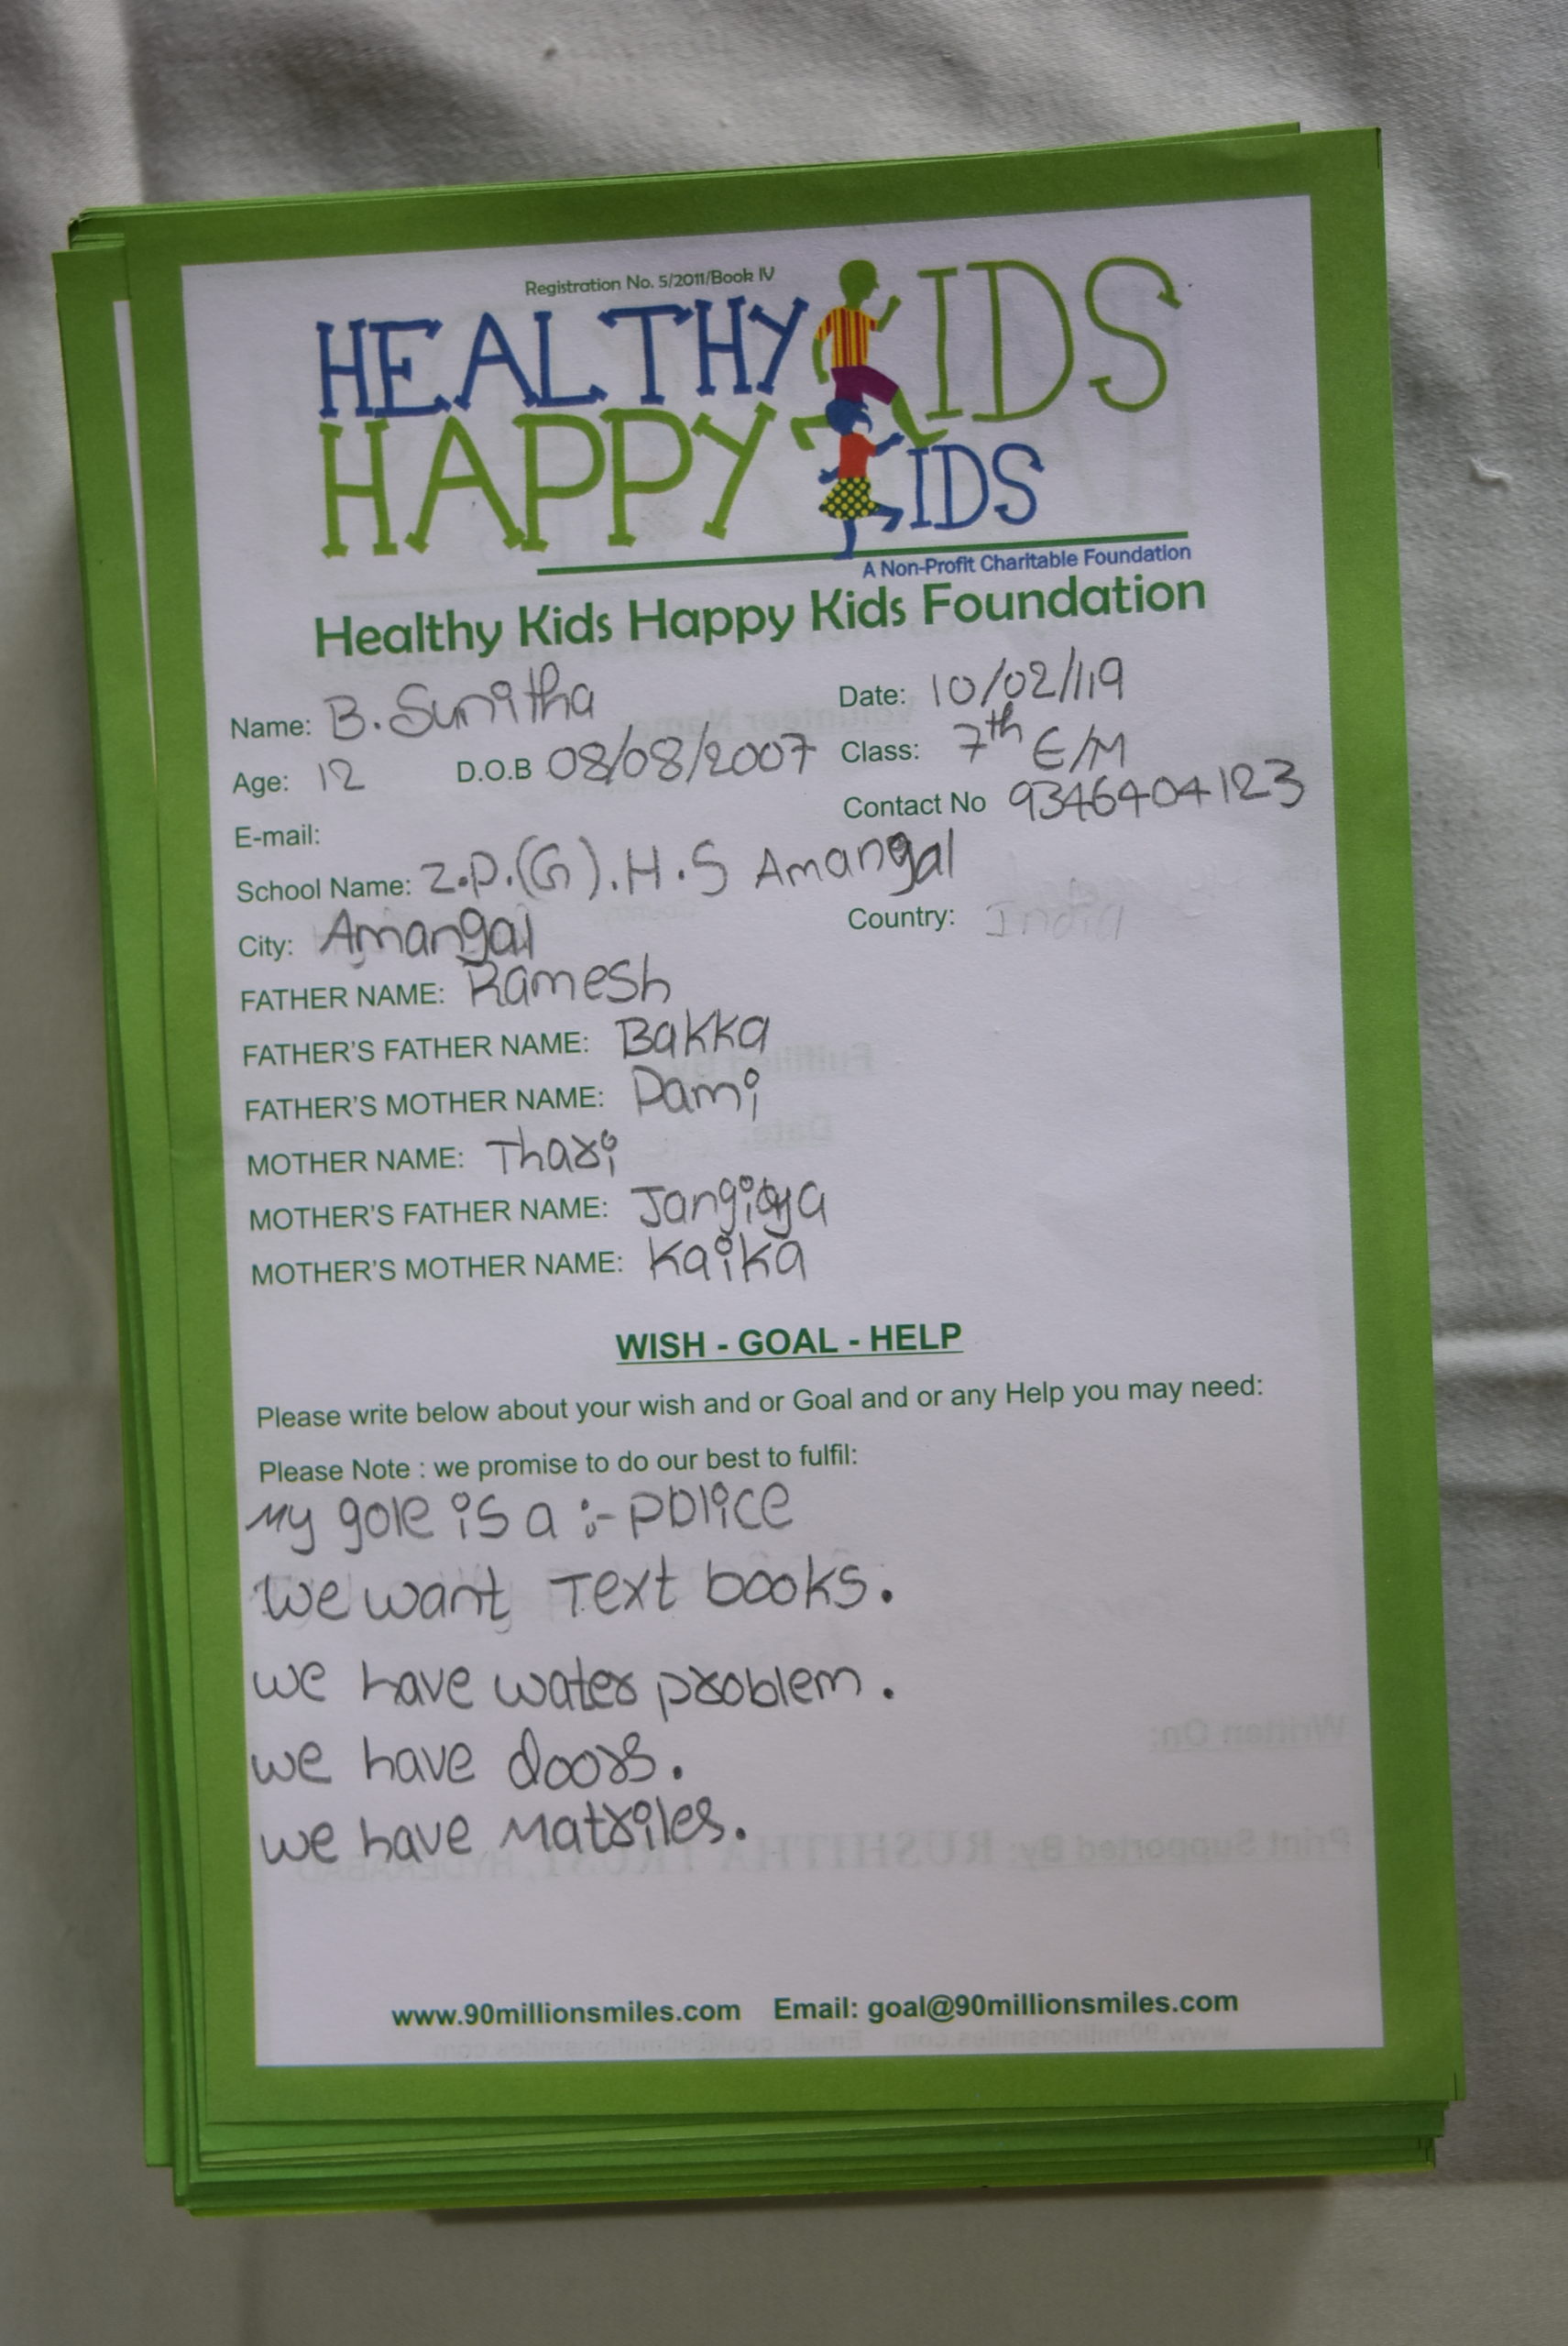 Registration No. 5/2011/Book IV
HEALTHY KIDS
HAPPY KIDS
A Non-Profit Charitable Foundation
Healthy Kids Happy Kids Foundation
Name: B. Sunitha Date: 10/02/119
Age: 12 D.O.B 08/08/2007 Class: 7th E/M
E-mail: Contact No 9346404123
School Name: Z.P.(G).H.S Amangal
City: Amangal Country: India
FATHER NAME: Ramesh
FATHER'S FATHER NAME: Bakka
FATHER'S MOTHER NAME: Dami
MOTHER NAME: Thari
MOTHER'S FATHER NAME:
MOTHER'S MOTHER NAME: Kaika
WISH - GOAL - HELP
Please write below about your wish and or Goal and or any Help you may need:
Please Note : we promise to do our best to fulfil:
My gole is a :- police
we want Text books.
we have water problem.
we have doors.
we have Matriles.
www.90millionsmiles.com Email: goal@90millionsmiles.com